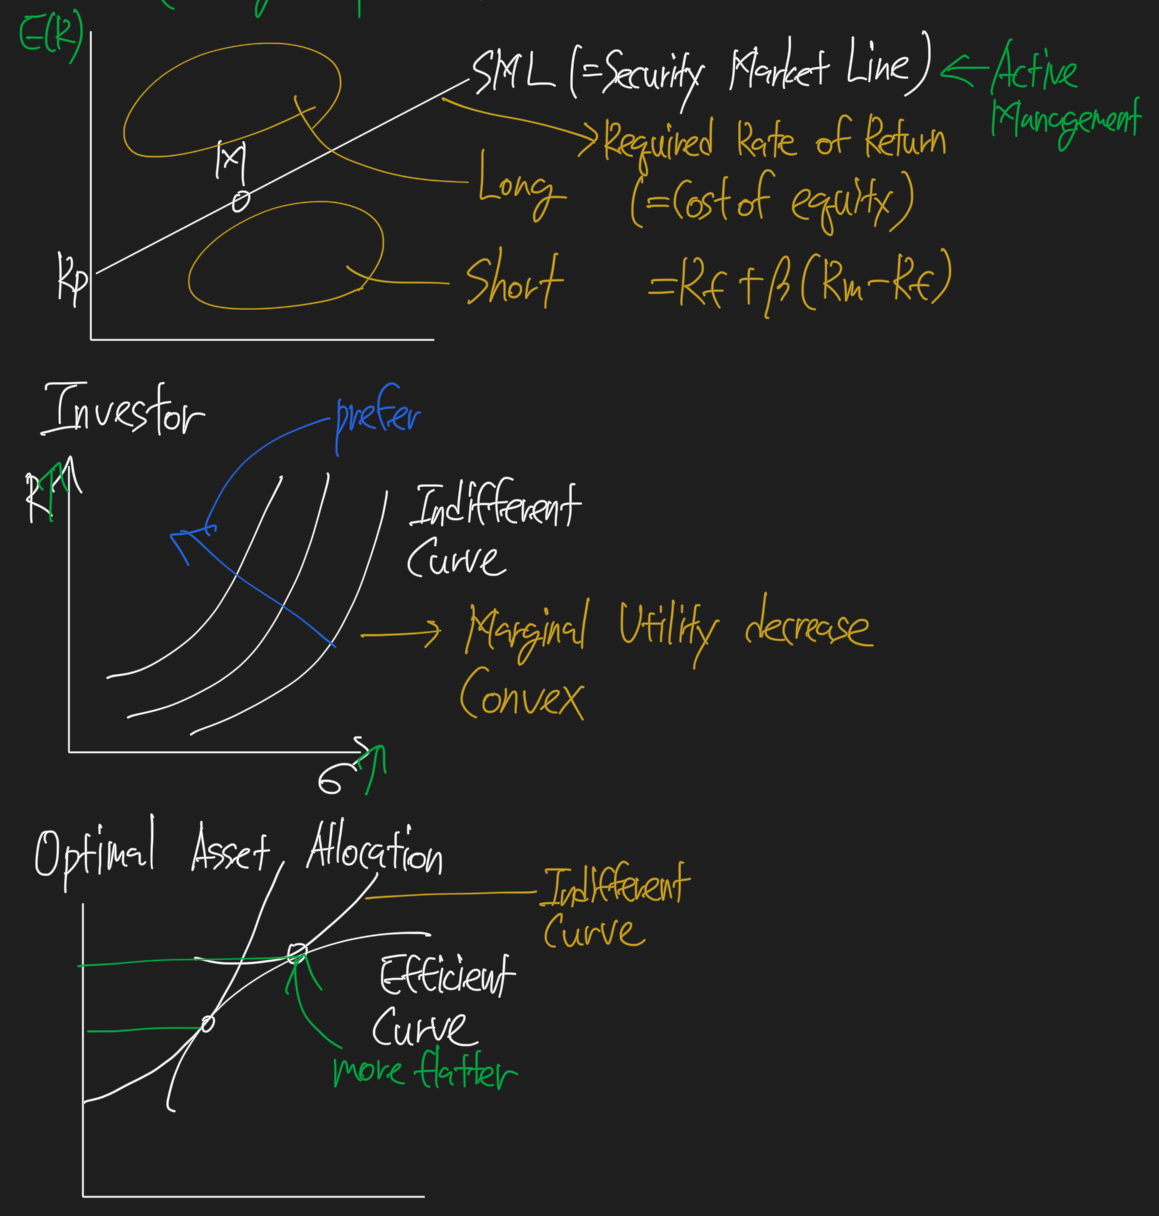 E(R)
SML (=Security Market Line) ← Active
Management
→ Required Rate of Return
(=Cost of equity)
= Rf + β (Rm - Rf)
M
Long
Short
Investor
prefer
R
Indifferent
Curve
→ Marginal Utility decrease
Convex
σ
Optimal Asset Allocation
Indifferent
Curve
Efficient
Curve
more flatter